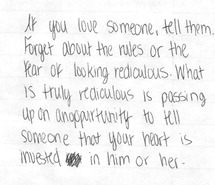 If you love someone, tell them.
Forget about the rules or the
fear of looking rediculous. What
is truly rediculous is passing
up on an oppurtunity to tell
someone that your heart is
invested in him or her.